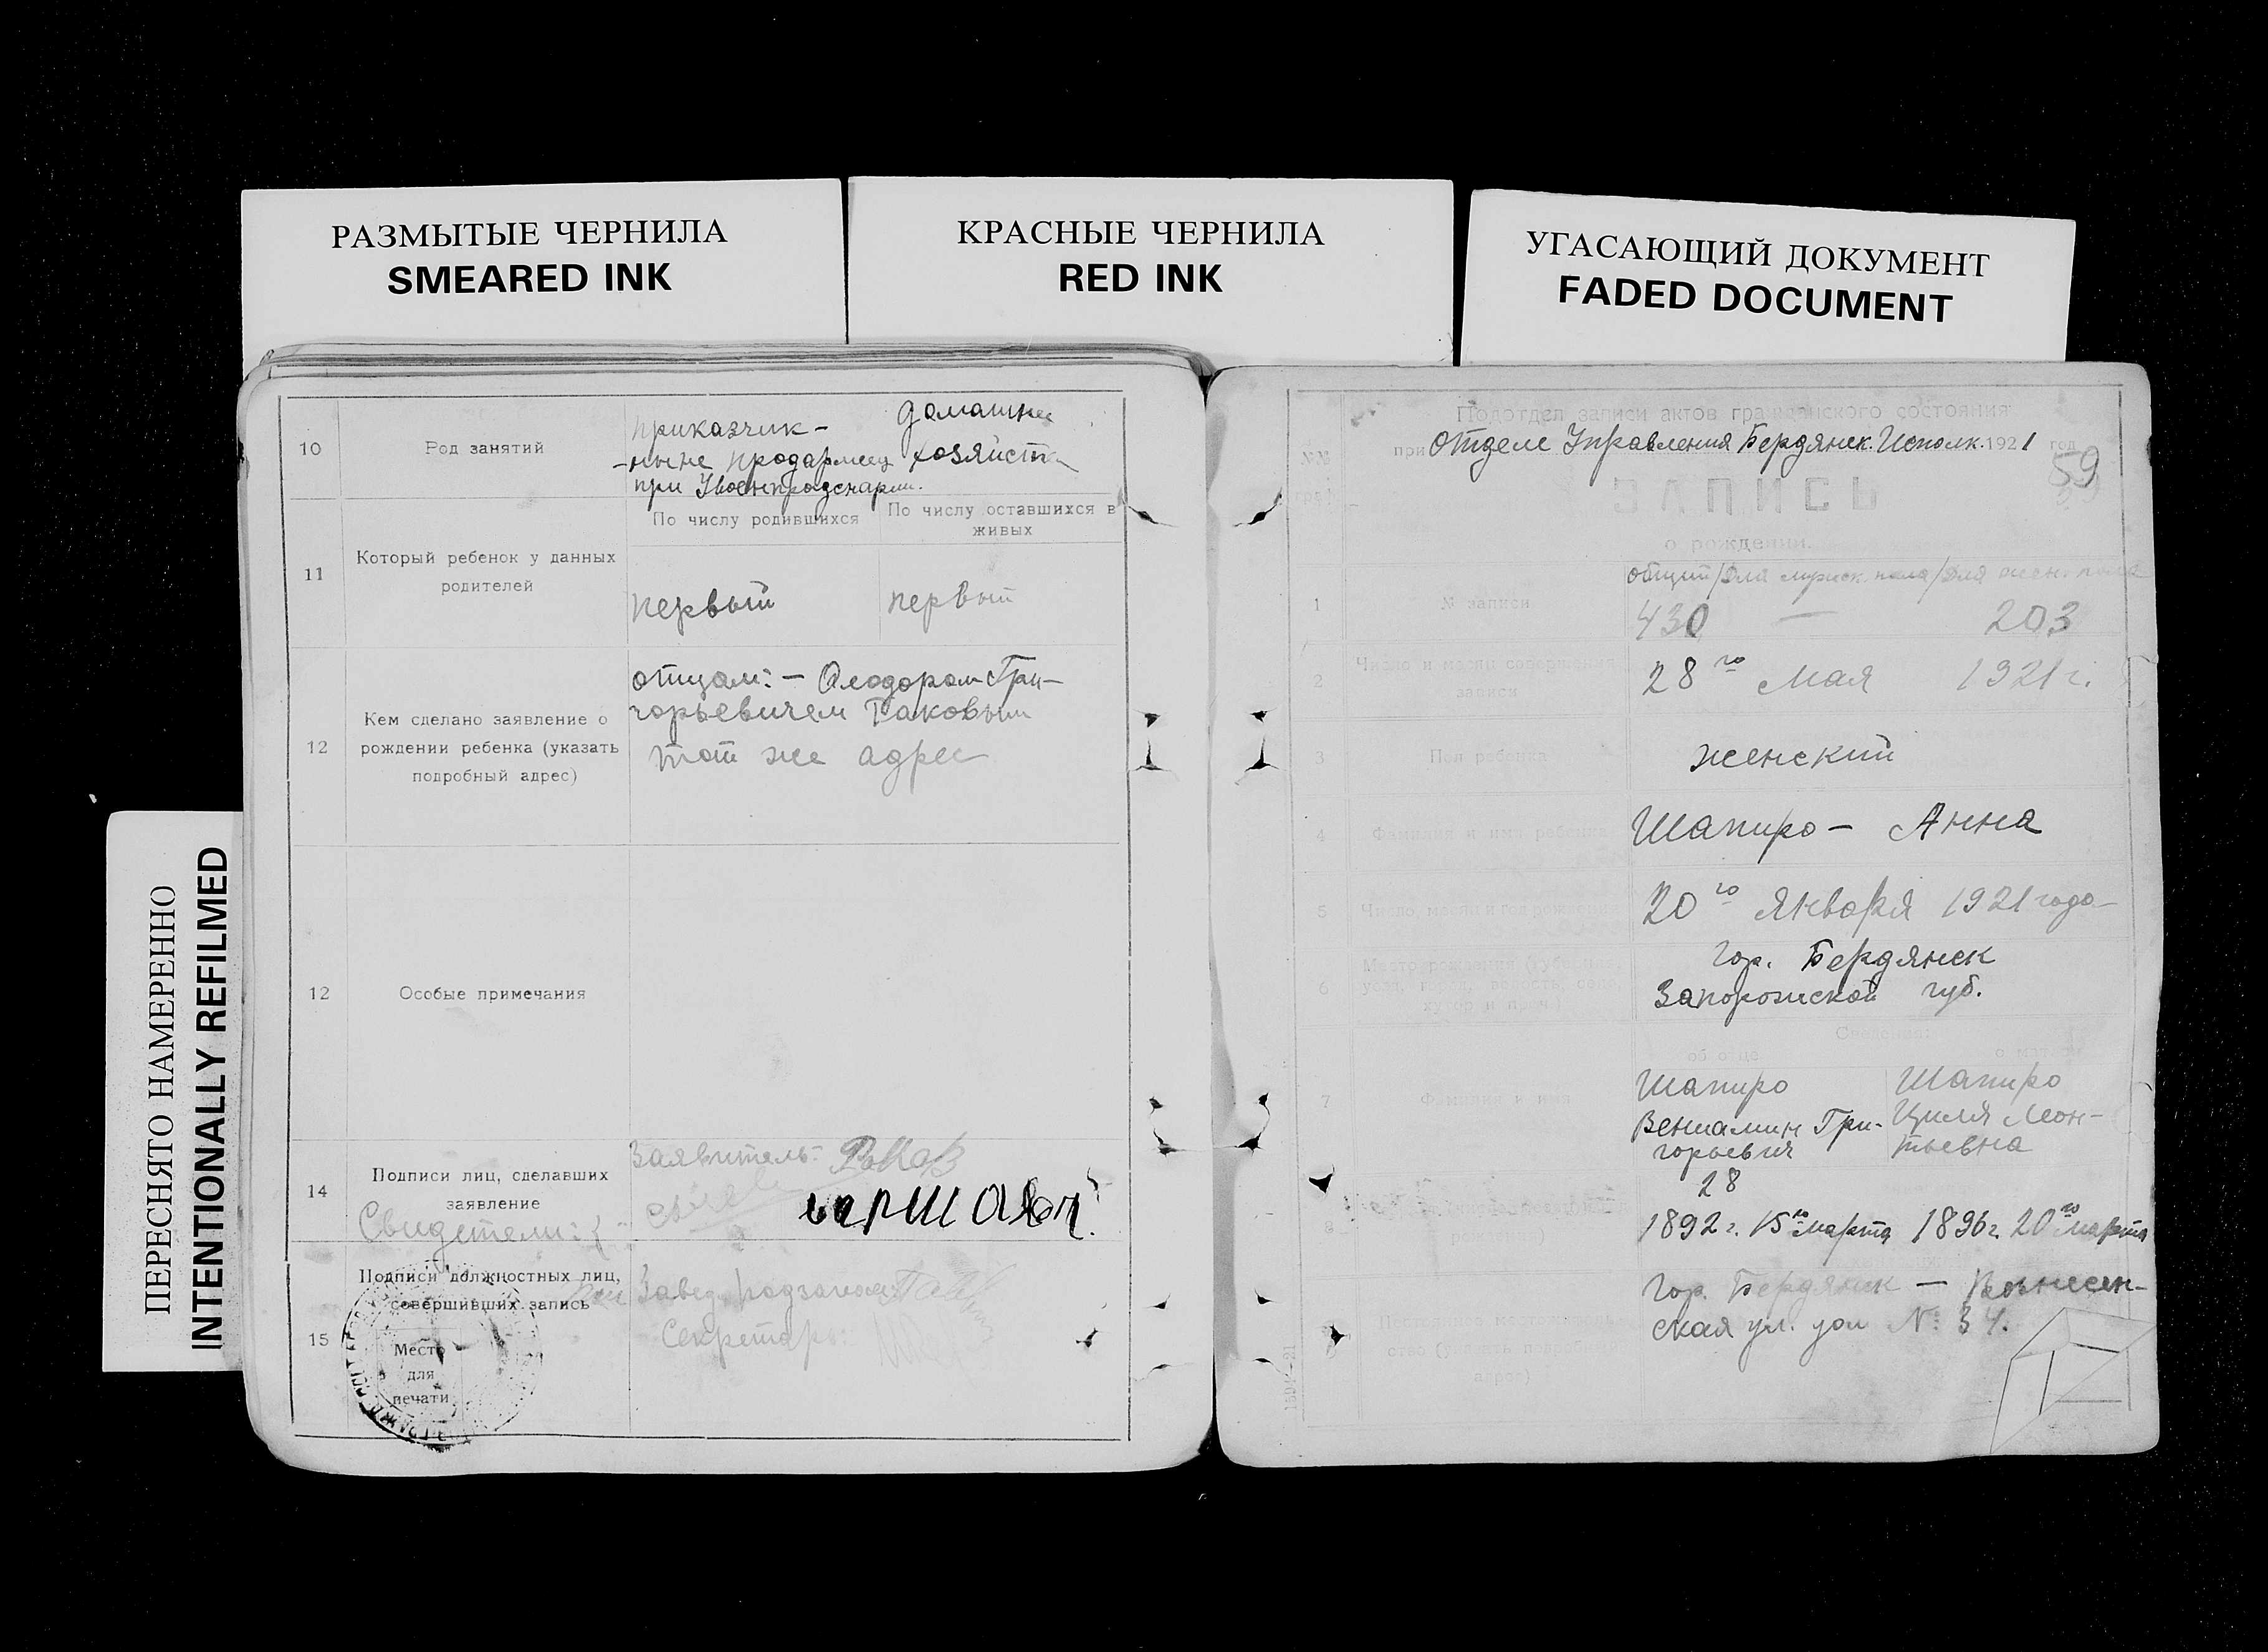 РАЗМЫТЫЕ ЧЕРНИЛА
SMEARED INK
КРАСНЫЕ ЧЕРНИЛА
RED INK
УГАСАЮЩИЙ ДОКУМЕНТ
FADED DOCUMENT
ПЕРЕСНЯТО НАМЕРЕННО
INTENTIONALLY REFILMED
10
Род занятий
приказчик -
- ныне продармеец
при
домашнее
хозяйство
11
Который ребенок у данных
родителей
По числу родившихся
По числу оставшихся в
живых
первый
первый
12
Кем сделано заявление о
рождении ребенка (указать
подробный адрес)
отцам: - Гри-
горьевичем Таковым
тот же адрес
12
Особые примечания
14
Подписи лиц, сделавших
заявление
Свидетели:
Заявитель:
15
Подписи должностных лиц,
совершивших запись
Место
для
печати
Завед.
Секретарь:
Подотдел записи актов гражданского состояния
при Отделе Управления Бердянск. Исполк. 1921 год
59
ЗАПИСЬ
о рождении.
1
№ записи
общий / для мужск. пола / для жен. пола
430 — 203
2
Число и месяц совершения
записи
28го Мая 1921 г.
3
Пол ребенка
женский
4
Фамилия и имя ребенка
Шапиро - Анна
5
Число, месяц и год рождения
20го Января 1921 года
6
гор. Бердянск
Запорожской губ.
Сведения:
об отце
о матери
7
Фамилия и имя
Шапиро
Вениамин Гри-
горьевич
Шапиро
Циля Леон-
тьевна
8
рождения)
28
1892 г. 15го марта
1896 г. 20го марта
Гор. Бердянск — Вознесен-
ская ул. дом № 34.